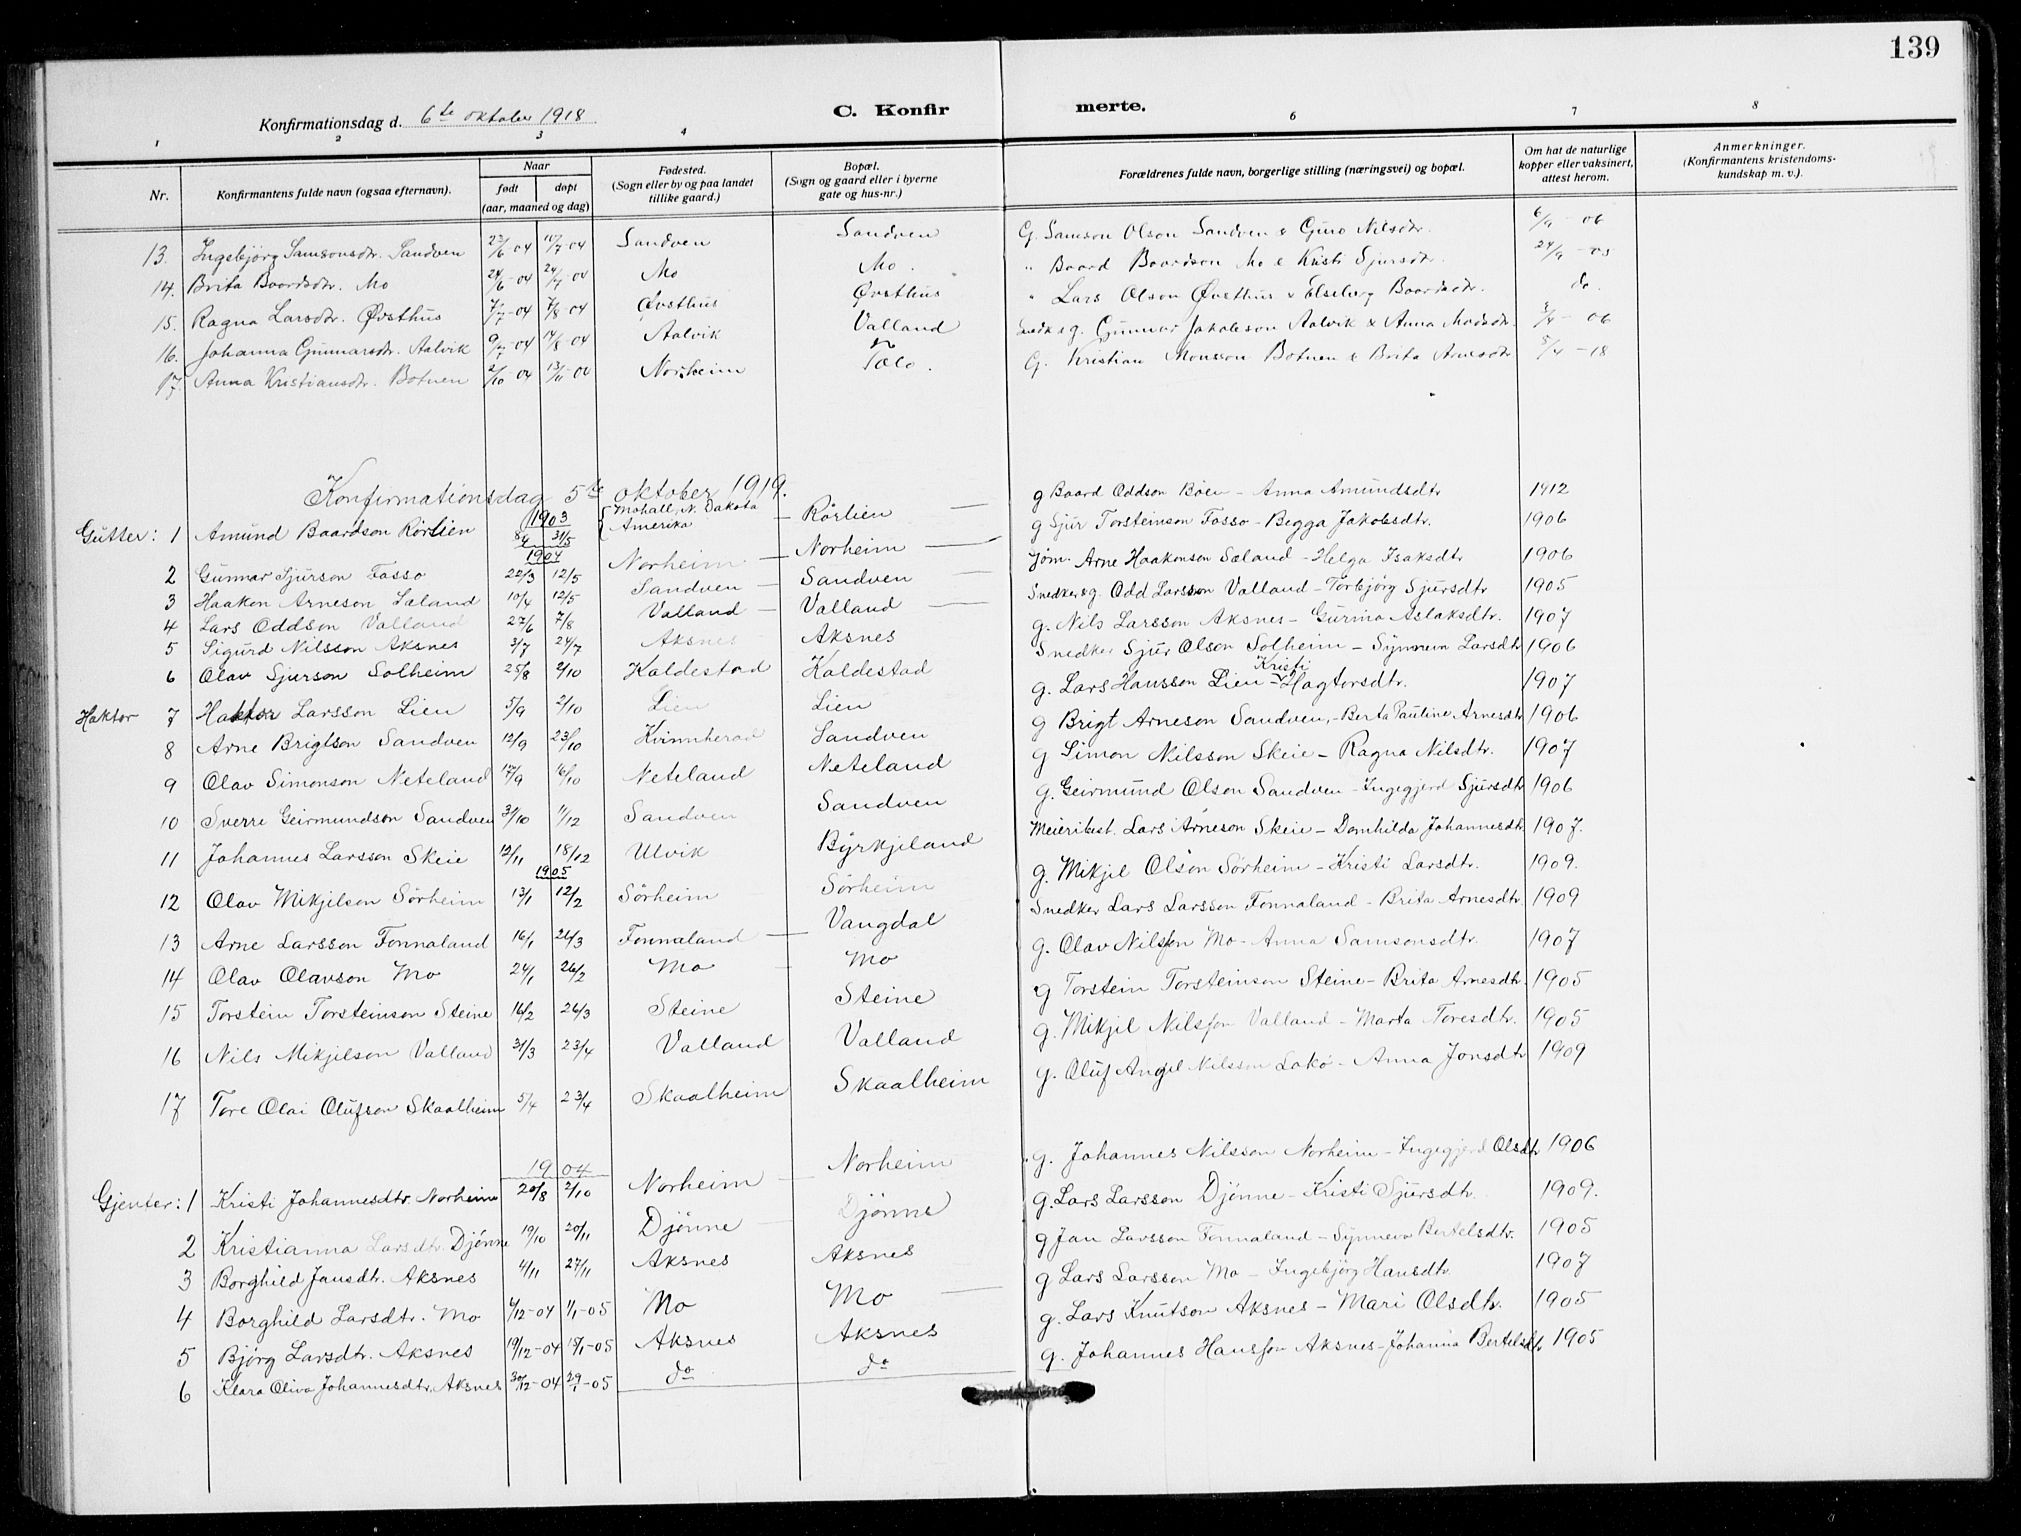 139
Konfirmationsdag d. 6te oktober 1918
C. Konfirmerte.
1 2 3 4 6 7 8
Nr. Konfirmantens fulde navn (ogsaa efternavn). Naar født døpt (aar, maaned og dag) Fødested. (Sogn eller by og paa landet tillike gaard.) Bopæl. (Sogn og gaard eller i byerne gate og hus-nr.) Forældrenes fulde navn, borgerlige stilling (næringsvei) og bopæl. Om hat de naturlige kopper eller vaksinert, attest herom. Anmerkninger. (Konfirmantens kristendomskundskap m. v.).
13. Ingebjørg Samsonsdtr. Sandven 23/6-04 10/7-04 Sandven Sandven G. Samson Olson Sandven & Guro Nilsdtr. 6/9-06
14. Brita Baardsdtr. Mo 24/6-04 24/7-04 Mo Mo. " Baard Baardson Mo & Kristi Sjursdtr. 24/9-05
15. Ragna Larsdtr. Øvsthus 7/7-04 7/8-04 Øvsthus Øvsthus " Lars Olson Øvsthus & Elseberg Baardsdtr. do.
16. Johanna Gunnarsdtr. Aalvik 9/7-04 14/8-04 Aalvik Valland Snedk & g. Gunnar Jakobson Aalvik & Anna Madsdtr. 06
17. Anna Kristiansdtr. Botnen 2/10-04 13/11-00 Norheim Tolo. G. Kristian Monsson Botnen & Brita Arnesdtr 5/4-18
Konfirmationsdag 5te oktober 1919.
1903
Gutter: 1 Amund Baardson Rørlien 8/4 31/5 Mohall, N. Dakota Amerika - Rørlien g Baard Oddson Böen - Anna Amundsdtr 1912
1904
2 Gunnar Sjurson Fosso 22/3 12/5 Norheim - Norheim g Sjur Torsteinson Fosso - Begga Jakobsdtr. 1906
3 Haakon Arneson Sæland 10/4 12/5 Sandven - Sandven Jøm. Arne Haakonson Sæland - Helga Isaksdtr 1906
4 Lars Oddson Valland 27/6 7/8 Valland - Valland Snedker & g. Odd Larsson Valland - Torbjörg Sjursdtr 1905
5 Sigurd Nilsson Aksnes 3/7 24/7 Aksnes Aksnes g. Nils Larsson Aksnes - Gurina Aslaksdtr. 1907
6 Olav Sjurson Solheim 25/8 2/10 Kaldestad Kaldestad Snedker Sjur Olson Solheim - Synneva Larsdtr 1906
Haktor 7 Haktor Larsson Lien 5/9 2/10 Lien Lien g. Lars Hansson Lien - Kristi Hagtorsdtr. 1907
8 Arne Brigtson Sandven 12/9 23/10 Kvinnherad Sandven g Brigt Arneson Sandven, - Berta Pauline Arnesdtr 1906
9 Olav Simonson Neteland 17/9 16/10 Neteland Neteland g Simon Nilsson Skeie - Ragna Nilsdtr. 1907
10 Sverre Geirmundson Sandven 31/10 11/12 Sandven Sandven g. Geirmund Olson Sandven - Ingegjerd Sjursdtr 1906
11 Johannes Larsson Skeie 12/11 18/12 Ulvik Byrkjeland Meieribest. Lars Arneson Skeie - Domhilda Johannesdtr 1907.
1905
12 Olav Mikjelson Sørheim 13/1 12/2 Sørheim Sørheim g. Mikjel Olson Sørheim - Kristi Larsdtr. 1909.
13 Arne Larsson Fonnaland 16/1 26/3 Fonnaland - Vangdal Snedker Lars Larsson Fonnaland - Brita Arnesdtr 1909
14 Olav Olavson Mo 24/1 26/2 Mo - Mo g. Olav Nilsson Mo - Anna Samsonsdtr. 1907
15 Torstein Torsteinson Steine 16/2 26/3 Steine Steine g Torstein Torsteinson Steine - Brita Arnesdtr. 1905
16 Nils Mikjelson Valland 31/3 23/4 Valland Valland g. Mikjel Nilsson Valland - Marta Toresdtr. 1905
17 Tore Olai Olufson Skaalheim 5/4 23/4 Skaalheim Skaalheim g. Oluf Angel Nilsson Lakø - Anna Jonsdtr 1909
1904
Gjenter: 1 Kristi Johannesdtr. Norheim 20/8 2/10 Norheim - Norheim g. Johannes Nilsson Norheim - Ingegjerd Olsdtr 1906
2 Kristianna Larsdtr. Djönne 19/10 20/11 Djönne Djönne g. Lars Larsson Djönne - Kristi Sjursdtr. 1909.
3 Borghild Jansdtr. Aksnes 4/11 27/11 Aksnes Aksnes g Jan Larsson Fonnaland - Synneva Bertelsdtr. 1905
4 Borghild Larsdtr. Mo 4/12-04 1/1-05 Mo Mo g Lars Larsson Mo - Ingebjörg Hansdtr. 1907
5 Bjørg Larsdtr. Aksnes 19/12-04 18/1-05 Aksnes Aksnes g. Lars Knutson Aksnes - Mari Olsdtr. 1905
6 Klara Oliva Johannesdtr. Aksnes 30/12-04 29/1-05 do do g. Johannes Hansson Aksnes - Johanna Bertelsdtr 1905